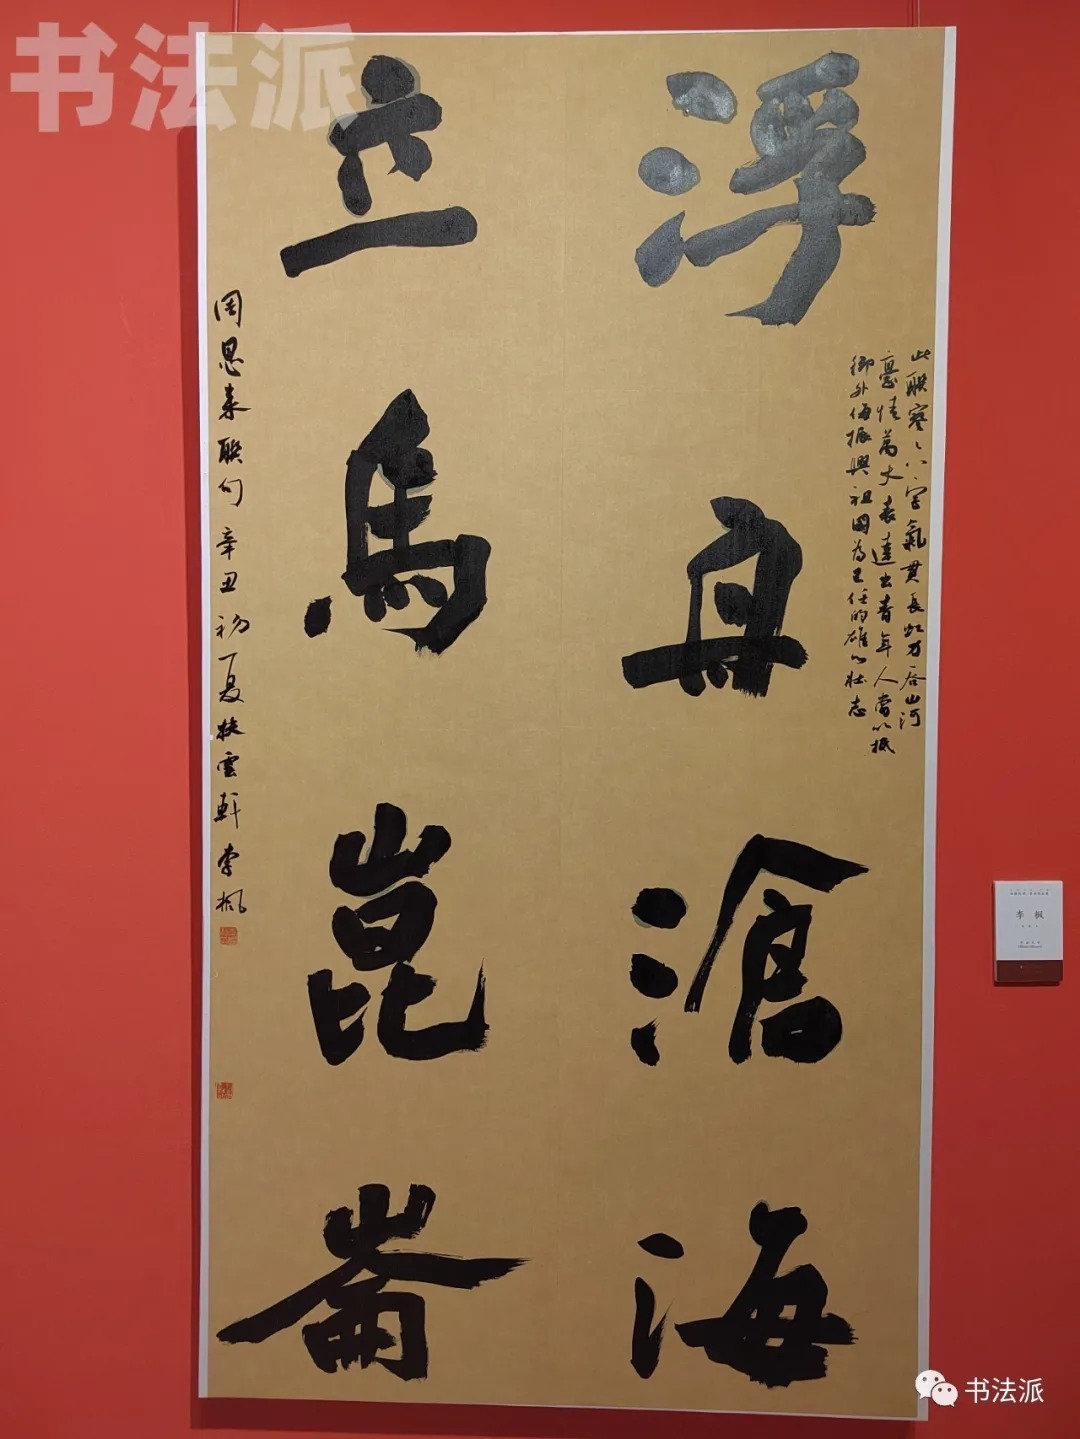 书法派
浮舟滄海
此联寥々八字氣貫長虹力吞山河
豪情萬丈表達出青年人當以抵
御外侮振興祖國為己任的雄心壯志
立馬崑崙
周恩来联句 辛丑初夏扶雲軒李楓
李枫
书法派